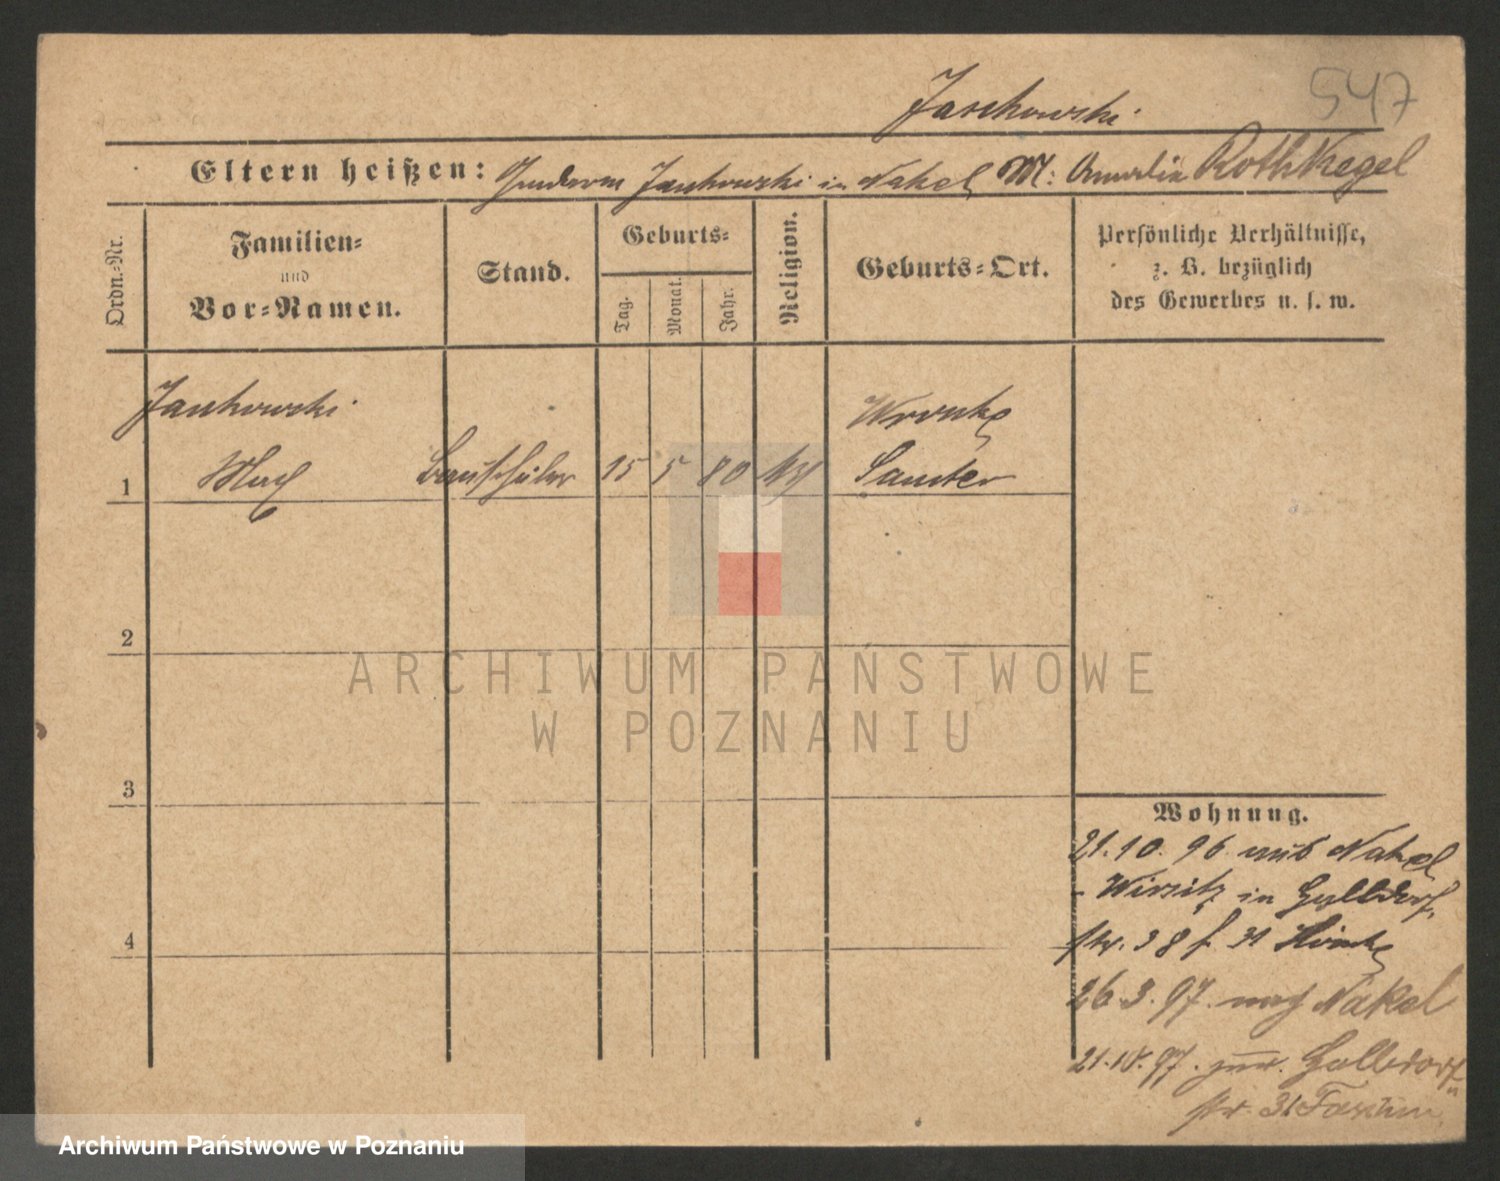 547
Jaschowski
Eltern heißen: Gendarm Jaschowski in Nakel M: Amalie Rothkegel
Ordn.-Nr.
Familien-
und
Vor-Namen.
Stand.
Geburts-
Tag.
Monat.
Jahr.
Religion.
Geburts-Ort.
Persönliche Verhältnisse,
z. B. bezüglich
des Gewerbes u. s. w.
Jaschowski
Wronke
1 Max Bauschüler 15 5 80 Samter
2
3
4
Wohnung.
21.10.96. aus Nakel
- Wirsitz in
str. 38 f.
26.3.97. nach Nakel
21.10.97.
str. 31
ARCHIWUM PAŃSTWOWE
W POZNANIU
Archiwum Państwowe w Poznaniu